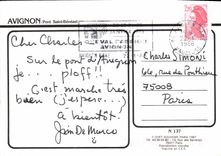 AVIGNON Pont Saint-Bénézet
AVIGNON
1988
2,20
Cher Charles
Sur le pont d'Avignon
je ... ploff !!
C'est marche très
bien (j'espère...)
à bientôt.
Jan De Marco
Charles SIMON
64, rue de Ponthieu
75008
Paris
N. 137